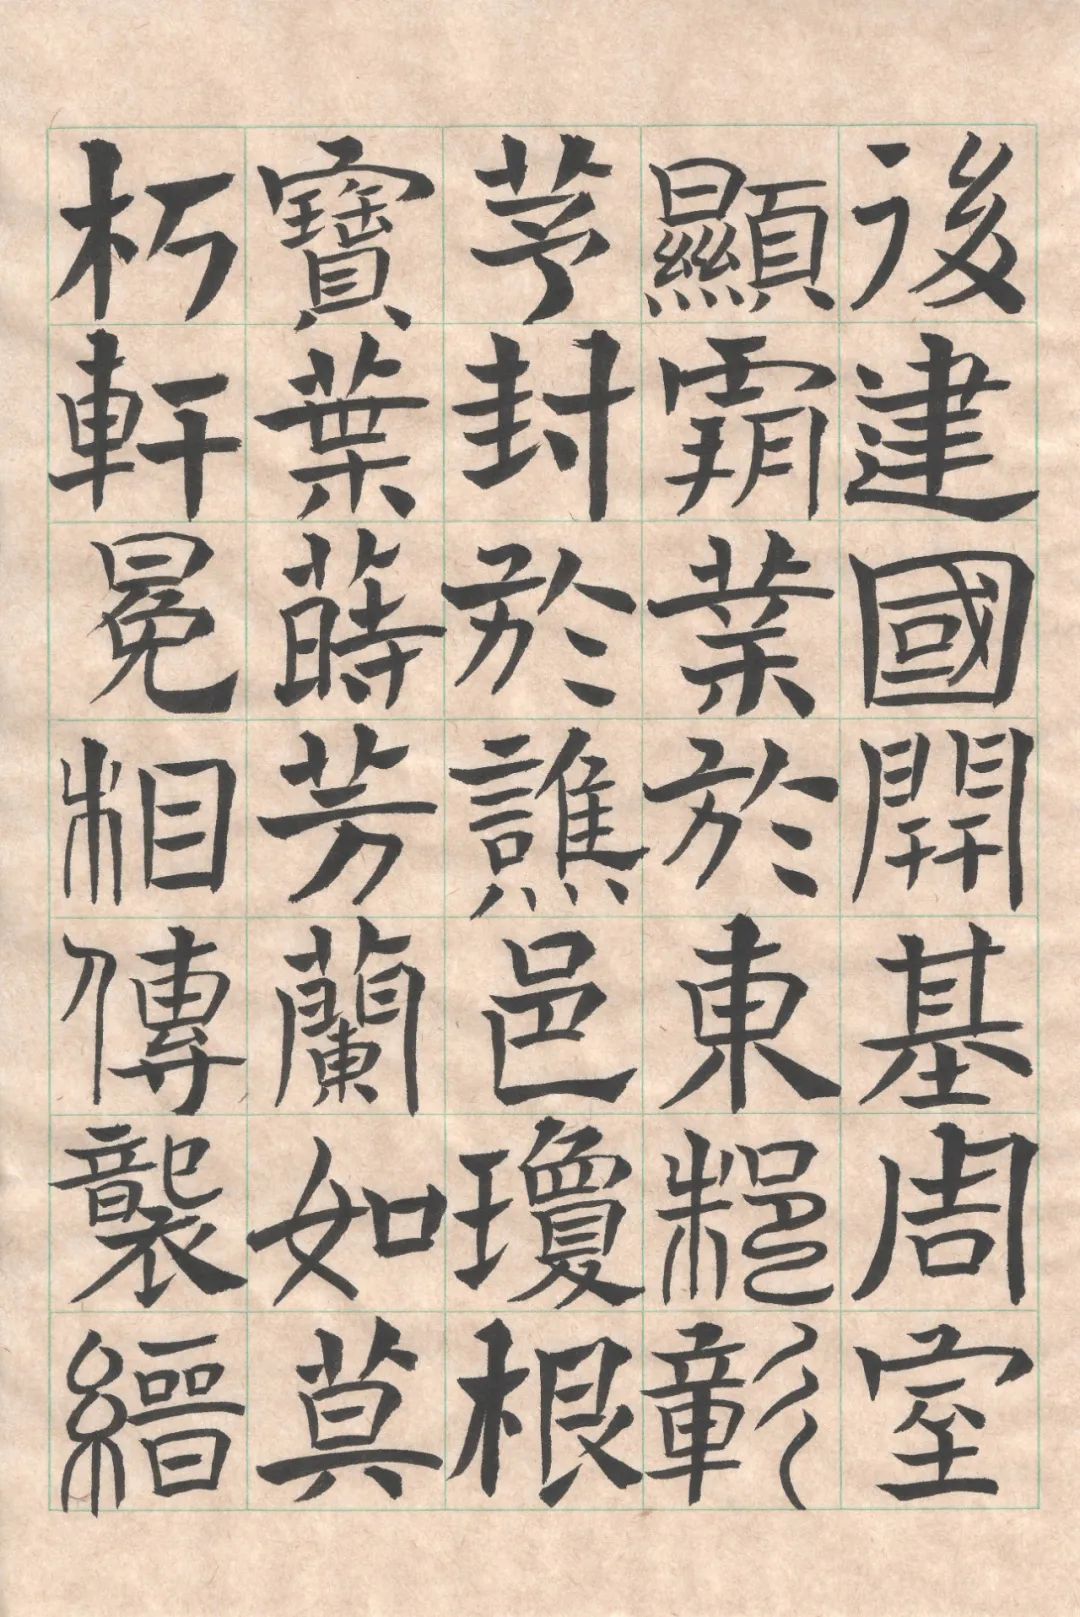 後建國開基周室
顯霸業於東邦彰
茅封於譙邑瓊根
寶葉蒔芳蘭如莫
朽軒冕相傳襲縉